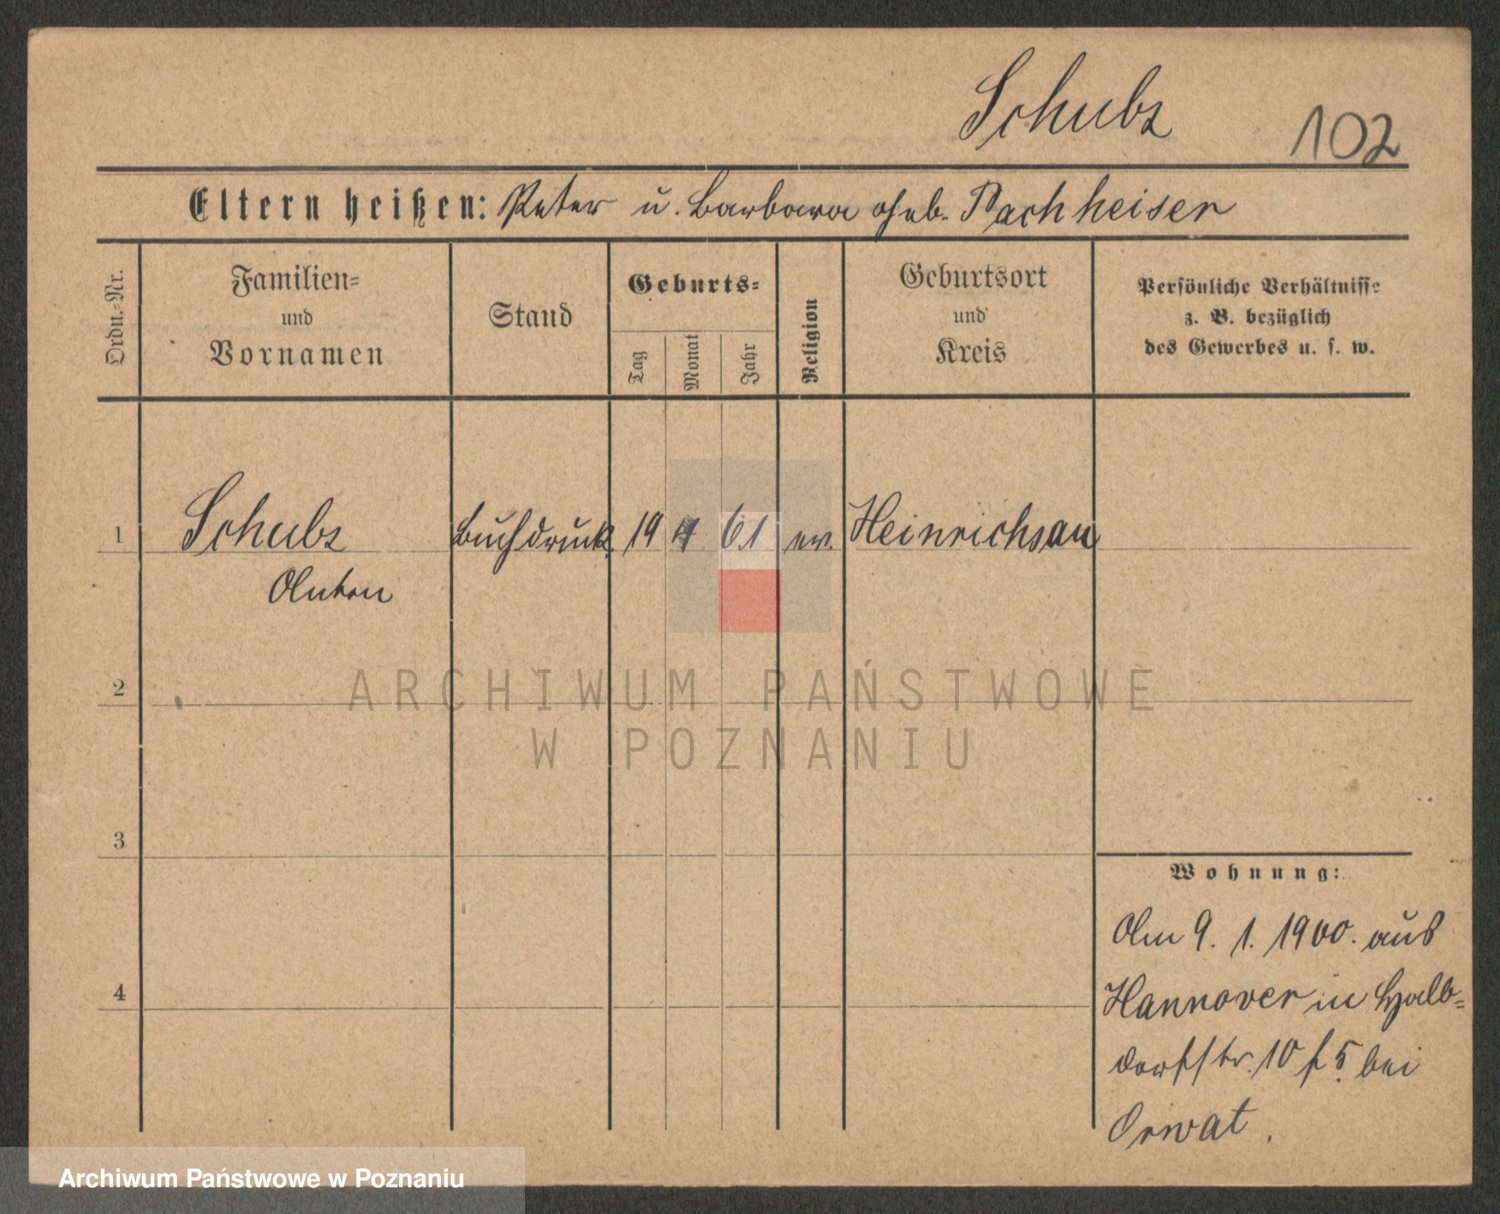 Schubz
102
Eltern heißen: Peter u. Barbara geb. Pachheiser
Ordn.-Nr.
Familien-
und
Vornamen
Stand
Geburts-
Tag
Monat
Jahr
Religion
Geburtsort
und
Kreis
Persönliche Verhältnisse
z. B. bezüglich
des Gewerbes u. s. w.
1 Schubz Buchdruck. 19 4 61 ev. Heinrichsau
Anton
2
ARCHIWUM PAŃSTWOWE
W POZNANIU
3
Wohnung:
Am 9. 1. 1900. aus
4
Hannover in Halb-
dorfstr. 10 f 5 bei
Orwat.
Archiwum Państwowe w Poznaniu